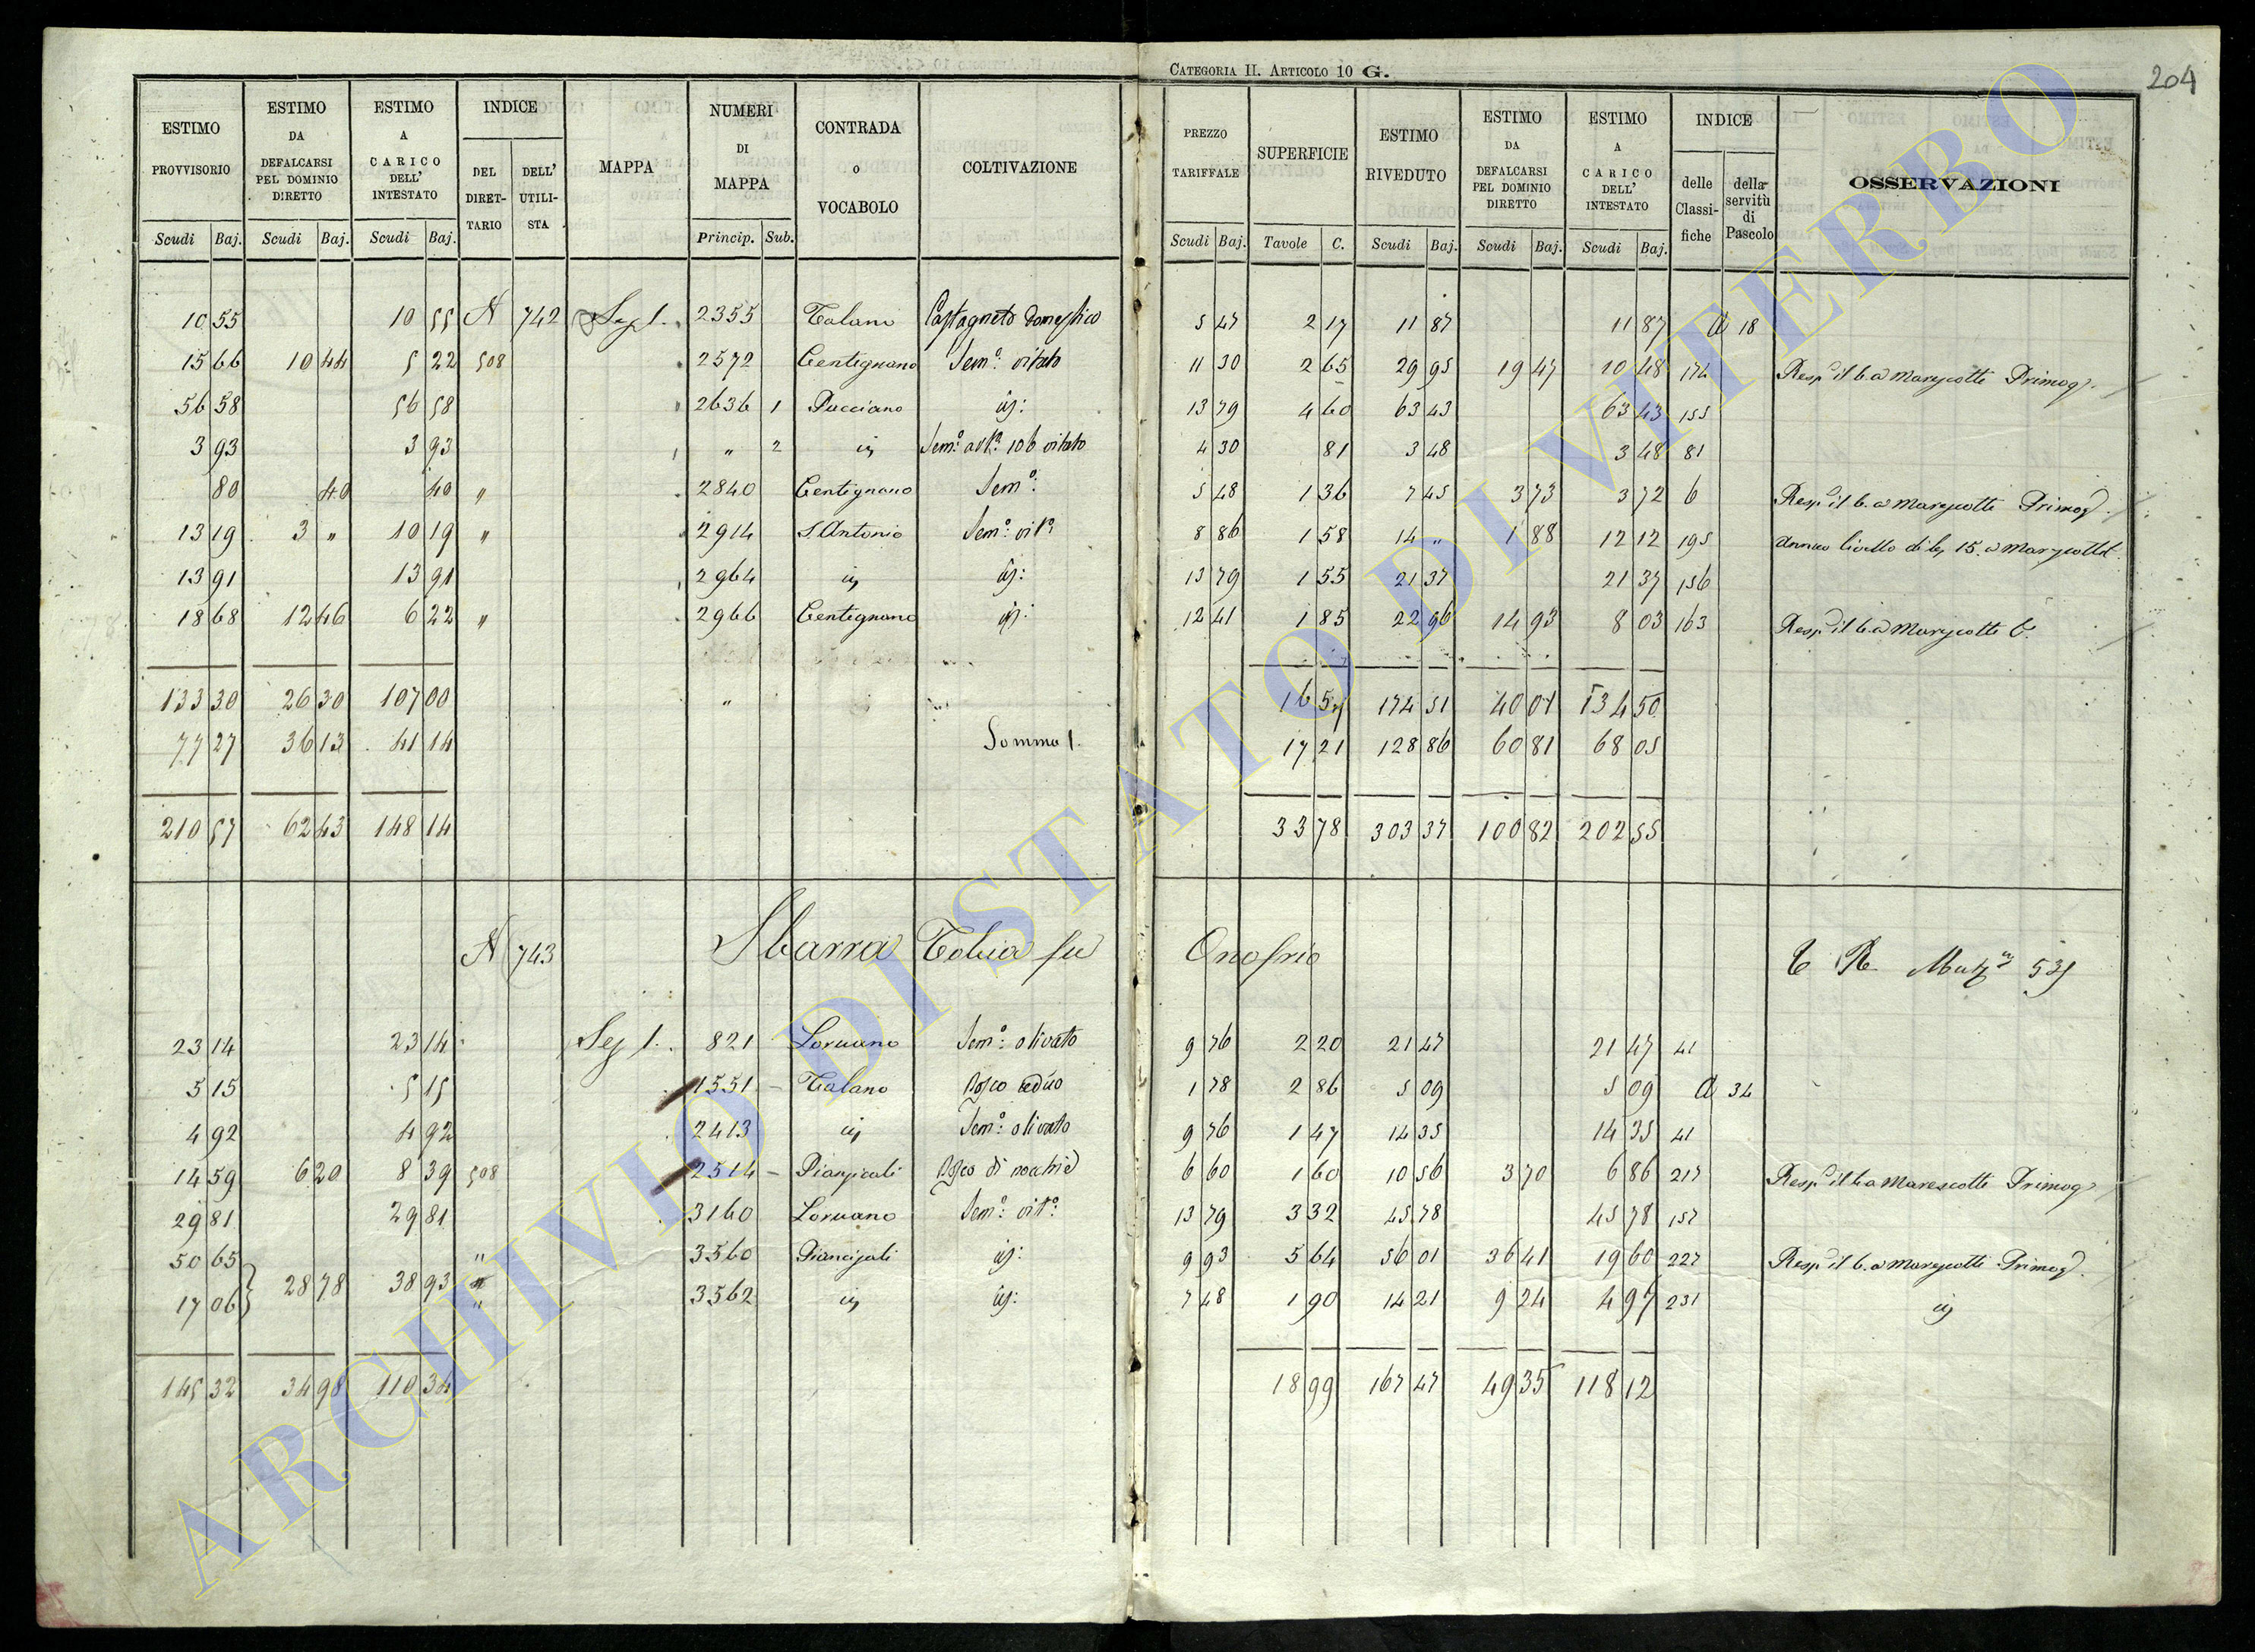 CATEGORIA II. ARTICOLO 10 G.
204
ESTIMO PROVVISORIO Scudi Baj.
ESTIMO DA DEFALCARSI PEL DOMINIO DIRETTO Scudi Baj.
ESTIMO A CARICO DELL' INTESTATO Scudi Baj.
INDICE DEL DIRET-TARIO DELL' UTILI-STA
MAPPA
NUMERI DI MAPPA Princip. Sub.
CONTRADA O VOCABOLO
COLTIVAZIONE
PREZZO TARIFFALE Scudi Baj.
SUPERFICIE Tavole C.
ESTIMO RIVEDUTO Scudi Baj.
ESTIMO DA DEFALCARSI PEL DOMINIO DIRETTO Scudi Baj.
ESTIMO A CARICO DELL' INTESTATO Scudi Baj.
INDICE delle Classi-fiche della servitù di Pascolo
OSSERVAZIONI
10 55 10 55 N 742 Sez 1. 2355 Talano Castagneto domestico 5 47 2 17 11 87 11 87 A 18
15 66 10 44 5 22 508 2572 Centignano Sem.o vitato 11 30 2 65 29 95 19 47 10 48 174 Resp. il 6. a Marescotti Primog.
56 58 56 58 2636 1 Pucciano id: 13 79 4 60 63 43 63 43 155
3 93 3 93 " 2 id 4 30 81 3 48 3 48 81
80 40 40 " 2840 Centignano Sem.o 5 48 1 36 7 45 3 73 3 72 6 Resp. il 6. a Marescotti Primog.
13 19 3 " 10 19 " 2914 S. Antonio Sem.o vit.o 8 86 1 58 14 " 1 88 12 12 195 annuo livello di 15. a Marescotti
13 91 13 91 2964 id id: 13 79 1 55 21 37 21 37 156
18 68 12 46 6 22 " 2966 Centignano id: 12 41 1 85 22 96 14 93 8 03 163 Resp. il 6. a Marescotti
133 30 26 30 107 00 16 57 174 51 40 01 134 50
77 27 36 13 41 14 Somma 1. 17 21 128 86 60 81 68 05
210 57 62 43 148 14 33 78 303 37 100 82 202 55
N 743 Sbarra Tobia fu Onofrio
23 14 23 14 Sez 1. 821 Loruano Sem.o olivato 9 76 2 20 21 47 21 47 41
5 15 5 15 1551 Talano Bosco ceduo 1 78 2 86 5 09 5 09 A 34
4 92 4 92 2413 id Sem.o olivato 9 76 1 47 14 35 14 35 41
14 59 6 20 8 39 508 2514 Bosco di nocchie 6 60 1 60 10 56 3 70 6 86 217 Resp. il 6 a Marescotti Primog.
29 81 29 81 3160 Loruano Sem.o vit.o 13 79 3 32 45 78 45 78 157
50 65 " 3560 id: 9 93 5 64 56 01 36 41 19 60 227 Resp. il 6. a Marescotti Primog.
17 06 28 78 38 93 " 3562 id id: 7 48 1 90 14 21 9 24 4 97 231 id
145 32 34 98 110 34 18 99 167 47 49 35 118 12
ARCHIVIO DI STATO DI VITERBO